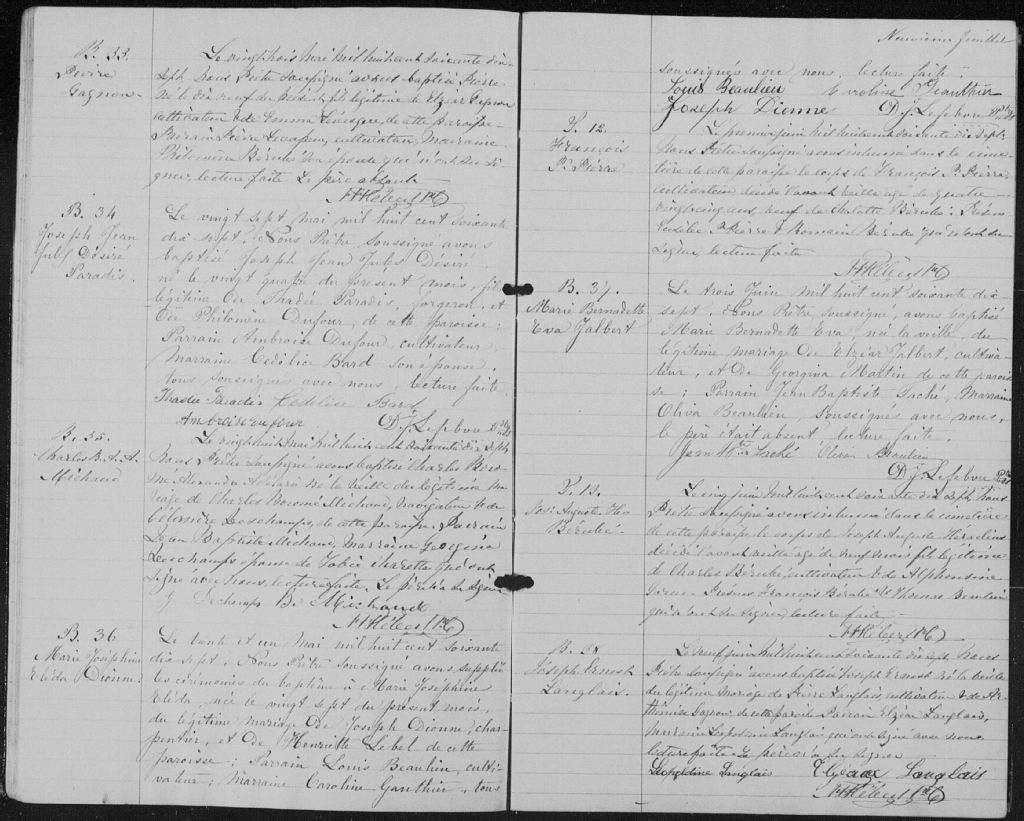 B. 33
Pierre
Gagnon
Le vingt trois mai mil huit cent soixante dix
sept Nous Prêtre soussigné avons baptisé Pierre
né le dix neuf du présent fils légitime de Elzéar Gagnon
cultivateur & de Emma Lévesque de cette paroisse
Parrain Pierre cultivateur, Marraine
Philomène Bérubé son épouse qui n'ont su si-
gner lecture faite Le père absent
B. 34
Joseph Jean
Jules Désiré
Paradis.
Le vingt sept mai mil huit cent soixante
dix-sept, Nous Prêtre soussigné avons
baptisé Joseph Jean Jules Désiré,
né le vingt quatre du présent mois, fils
légitime de Thadée Paradis, forgeron, et
de Philomène Dufour, de cette paroisse;
Parrain Ambroise Dufour, cultivateur,
Marraine Cédélice Bard son épouse,
tous soussignés avec nous, lecture faite
Thadée Paradis Cédélice Bard
Ambroise Dufour D. J. Lefebvre Ptre
B. 35.
Charles B. A. A.
Michaud
Le vingt huit mai mil huit cent soixante dix sept
Nous Prêtre soussigné avons baptisé Charles Boro-
mé Alexandre né la veille du légitime ma-
riage de Charles Boromé Michaud, navigateur & de
Deschamps, de cette paroisse, Parrain
Jean Baptiste Michaud, Marraine Georgina
Deschamps épouse de Tobie Charette qui ont
signé avec nous, lecture faite, Le père a su signer
G Dechamps B. Michaud
B. 36
Marie Joséphine
Eléda Dionne
Le trente et un mai mil huit cent soixante
dix-sept, Nous Prêtre soussigné avons suppléé
les cérémonies du baptême à Marie Joséphine
Eléda, née le vingt sept du présent mois,
du légitime mariage de Joseph Dionne, char-
pentier, et de Henriette Lebel de cette
paroisse; Parrain Louis Beaulieu, culti-
vateur; Marraine Caroline Gauthier, tous
Neuvième feuillet
soussignés avec nous, lecture faite.
Louis Beaulieu Caroline Gauthier
Joseph Dionne D. J. Lefebvre Ptre
S. 12.
François
St Pierre
Le premier juin mil huit cent soixante dix sept
Nous Prêtre soussigné avons inhumé dans le cime-
tière de cette paroisse le corps de François St Pierre
cultivateur décédé l'avant veille agé de quatre
vingt cinq ans veuf de Charlotte Bérubé. Présen
St Pierre & Romain Bérubé qui n'ont su
signer, lecture faite
B. 37.
Marie Bernadette
Eva Jalbert
Le trois Juin mil huit cent soixante dix
sept, Nous Prêtre soussigné, avons baptisé
Marie Bernadette Eva, née la veille, du
légitime mariage de Elzéar Jalbert, cultiva-
teur, et de Georgina Martin de cette parois-
se; Parrain Jean Baptiste Taché, Marraine
Oliva Beaulieu, soussignés avec nous,
le père était absent, lecture faite.
Jean Bte Taché Oliva Beaulieu
D. J. Lefebvre Ptre
S. 13.
Jos. Auguste
Bérubé
Le cinq juin mil huit cent soixante dix sept Nous
Prêtre soussigné avons inhumé dans le cimetière
de cette paroisse le corps de Joseph Auguste
décédé l'avant veille agé de neuf mois fils légitime
de Charles Bérubé, cultivateur & de Alphonsine
Présens François Bérubé & Thomas Beaulieu
qui n'ont su signer, lecture faite
B. 38
Joseph Ernest
Langlais.
Le neuf juin mil huit cent soixante dix sept Nous
Prêtre soussigné avons baptisé Joseph Ernest né la veille
du légitime mariage de Pierre Langlais, cultivateur & de Ar-
thémise Gagnon, de cette paroisse Parrain Elzéar Langlais,
Marraine Léopoldine Langlais qui ont signé avec nous
lecture faite Le père n'a su signer
Léopoldine Langlais Elzéar Langlais